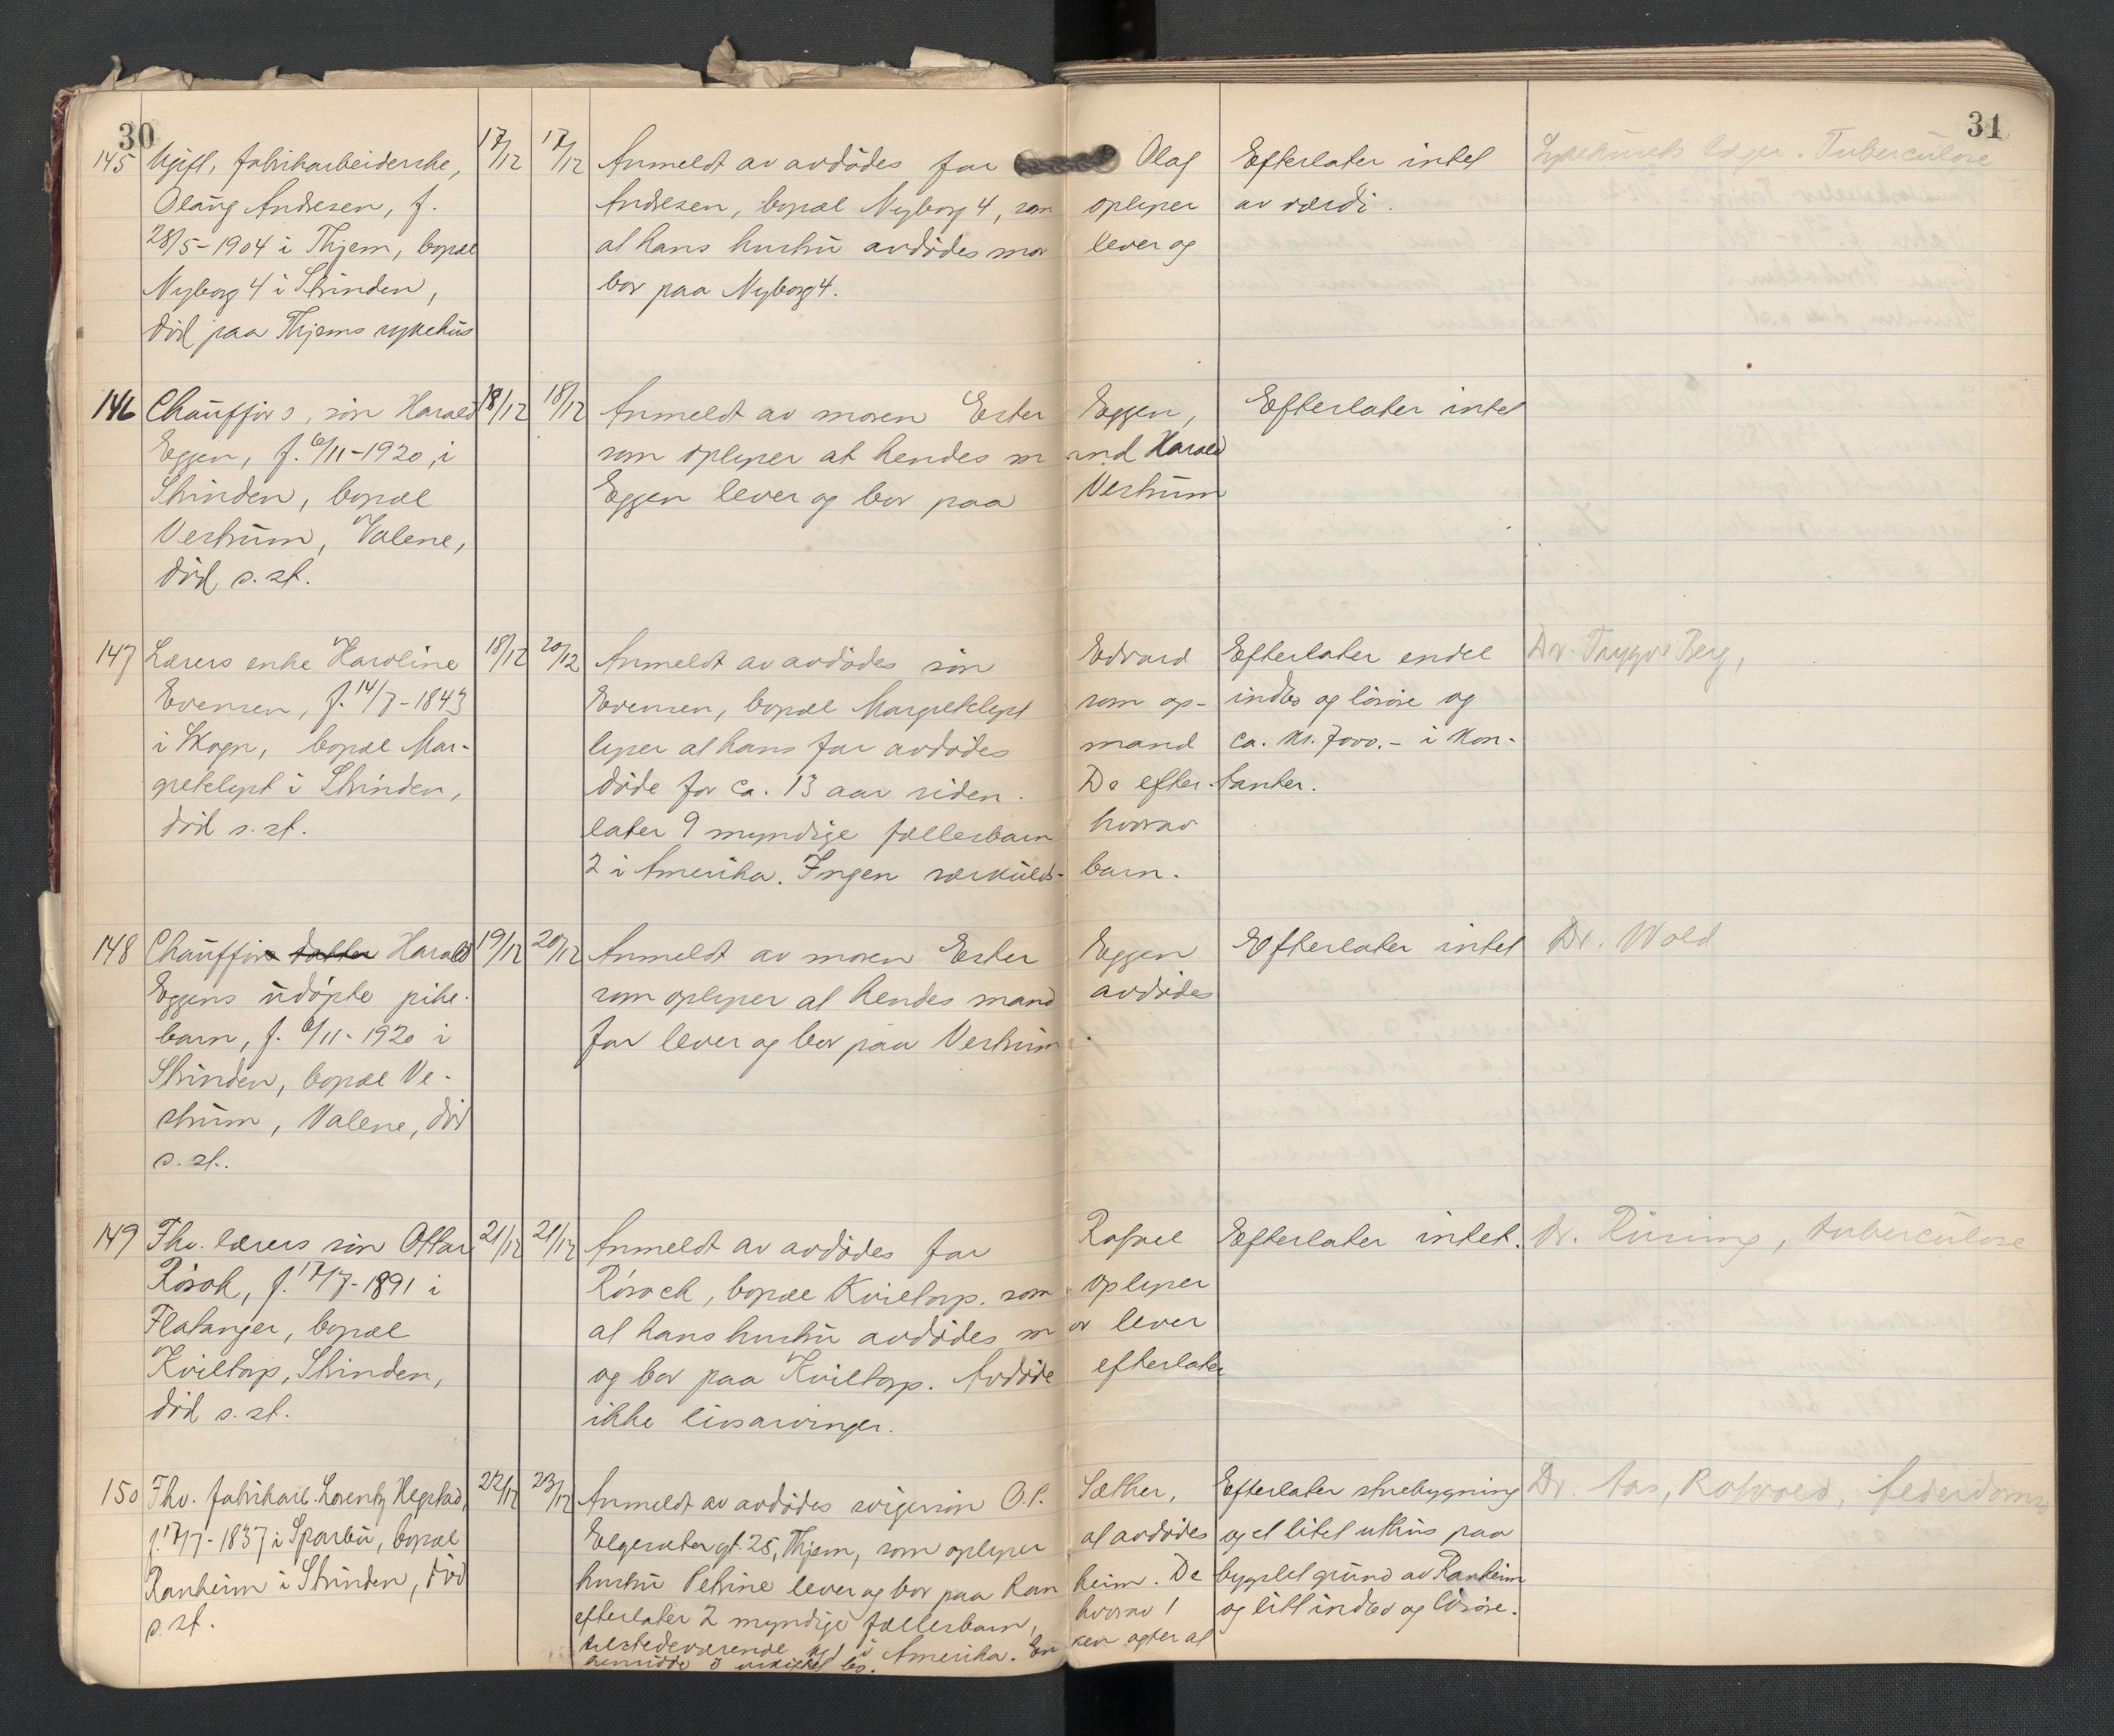 30
31
145 Ugift, fabrikarbeiderske, 17/12 17/12 Anmeldt av avdødes far Olaf Efterlater intet Sykehusets læger. Tuberculose
Olaug Andresen, f. Andresen, bopæl Nyborg 4, som oplyser av værdi.
28/5-1904 i Thjem, bopæl at hans hustru avdødes mor lever og
Nyborg 4 i Strinden, bor paa Nyborg 4.
død paa Thjems sykehus
146 Chaufförs, søn Harald 18/12 18/12 Anmeldt av moren Ester Eggen, Efterlater intet
Eggen, f. 6/11-1920, i som oplyser at hendes mand Harald
Strinden, bopæl Eggen lever og bor paa Vestrum
Vestrum, Valene,
død s. st.
147 Lærers enke Karoline 18/12 20/12 Anmeldt av avdødes søn Edvard Efterlater endel Dr. Trygve Berg,
Evensen, f. 14/7-1843 Evensen, bopæl Margretelyst som op- indbo og løsøre og
i Skogn, bopæl Mar- lyser at hans far avdødes mand ca. kr. 7000.- i kon-
gretelyst i Strinden, døde for ca. 13 aar siden. De efter- tanter.
død s. st. later 9 myndige fællesbarn hvorav
2 i Amerika. Ingen særkulds- barn.
148 Chauffør datter Harald 19/12 20/12 Anmeldt av moren Ester Eggen Efterlater intet Dr. Wold
Eggens udøpte pike- som oplyser at hendes mand avdødes
barn, f. 6/11-1920 i far lever og bor paa Vestrum.
Strinden, bopæl Ve-
strum, Valene, død
s. st.
149 Fhv. lærers søn Ottar 21/12 21/12 Anmeldt av avdødes far Rafael Efterlater intet. Dr. Rusing, tuberculose
Rosok, f. 17/7-1891 i Rosock, bopæl Kviltorp. som oplyser
Flatanger, bopæl at hans hustru avdødes mor lever
Kviltorp, Strinden, og bor paa Kviltorp. Avdøde efterlater
død s. st. ikke livsarvinger.
150 Fhv. fabrikarb. Lorentz Hegstad, 22/12 23/12 Anmeldt av avdødes svigersøn O.P. Sæther, Efterlater stuebygning Dr. Aas, Rotvold, alderdoms
f. 17/7-1837 i Sparbu, bopæl Elgesetergt. 25, Thjem, som oplyser at avdødes og et litet uthus paa
Ranheim i Strinden, død hustru Petrine lever og bor paa Ranheim. De bygslet grund av Ranheim
s. st. efterlater 2 myndige fællesbarn, hvorav 1 og litt indbo og løsøre.
tilstedeværende og 1 i Amerika. Enken agter at
hensidde i uskiftet bo.